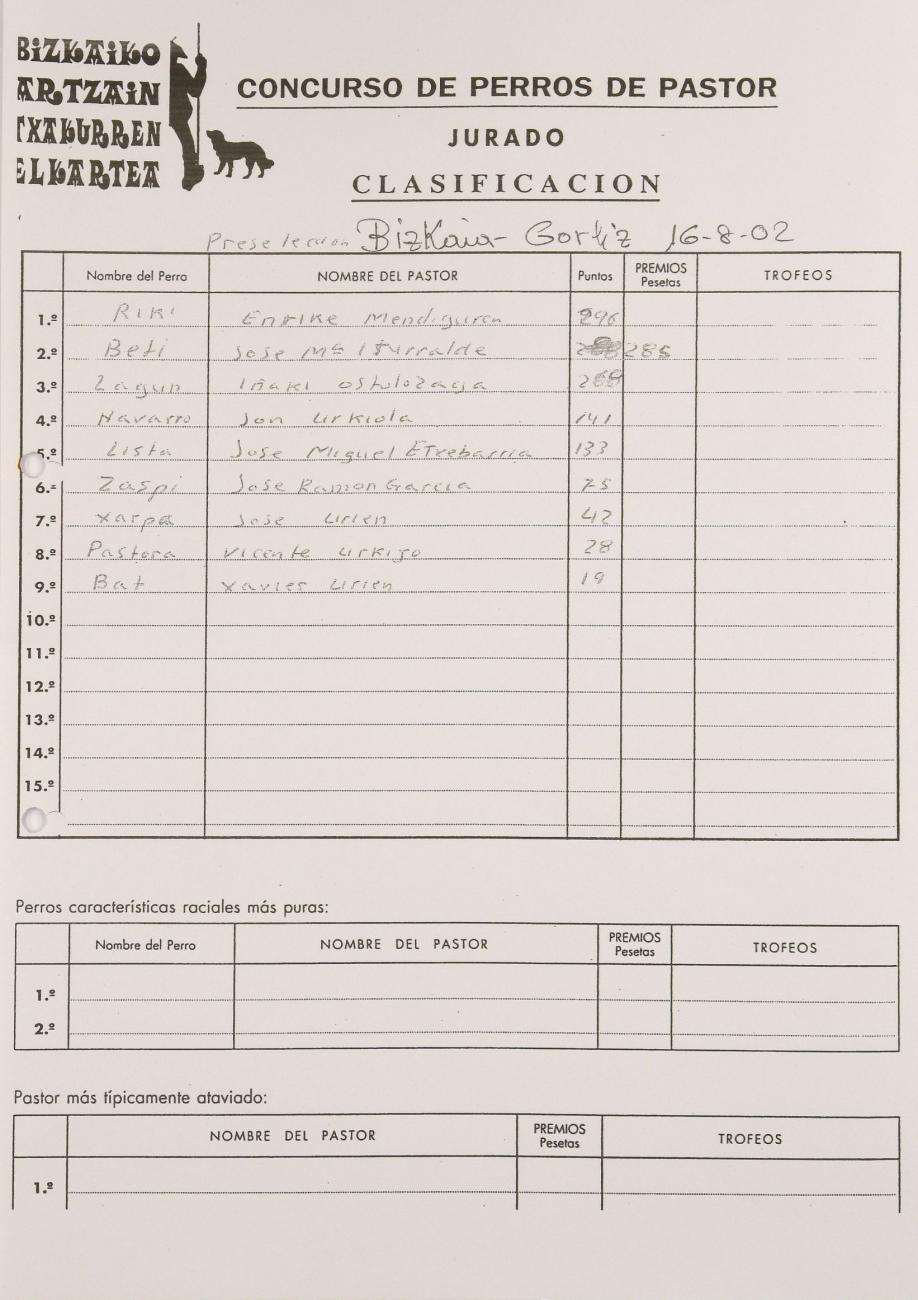 BIZKAIKO
ARTZAIN
TXAKURREN
ELKARTEA
CONCURSO DE PERROS DE PASTOR
JURADO
CLASIFICACION
Preselección Bizkaia - Gorliz 16-8-02
Nombre del Perro NOMBRE DEL PASTOR Puntos PREMIOS Pesetas TROFEOS
1.º Riki Enrike Mendiguren 296
2.º Beti Jose Mª Iturralde 285
3.º Lagun Iñaki Ostolozaga
4.º Navarro Jon Urkiola 141
5.º Lista Jose Miguel Etxebarria 133
6.º Zaspi Jose Ramon Garcia 75
7.º Xarpa Jose Urien 42
8.º Pastora Vicente Urkijo 28
9.º Bat Xavier Urien 19
10.º
11.º
12.º
13.º
14.º
15.º
Perros características raciales más puras:
Nombre del Perro NOMBRE DEL PASTOR PREMIOS Pesetas TROFEOS
1.º
2.º
Pastor más típicamente ataviado:
NOMBRE DEL PASTOR PREMIOS Pesetas TROFEOS
1.º